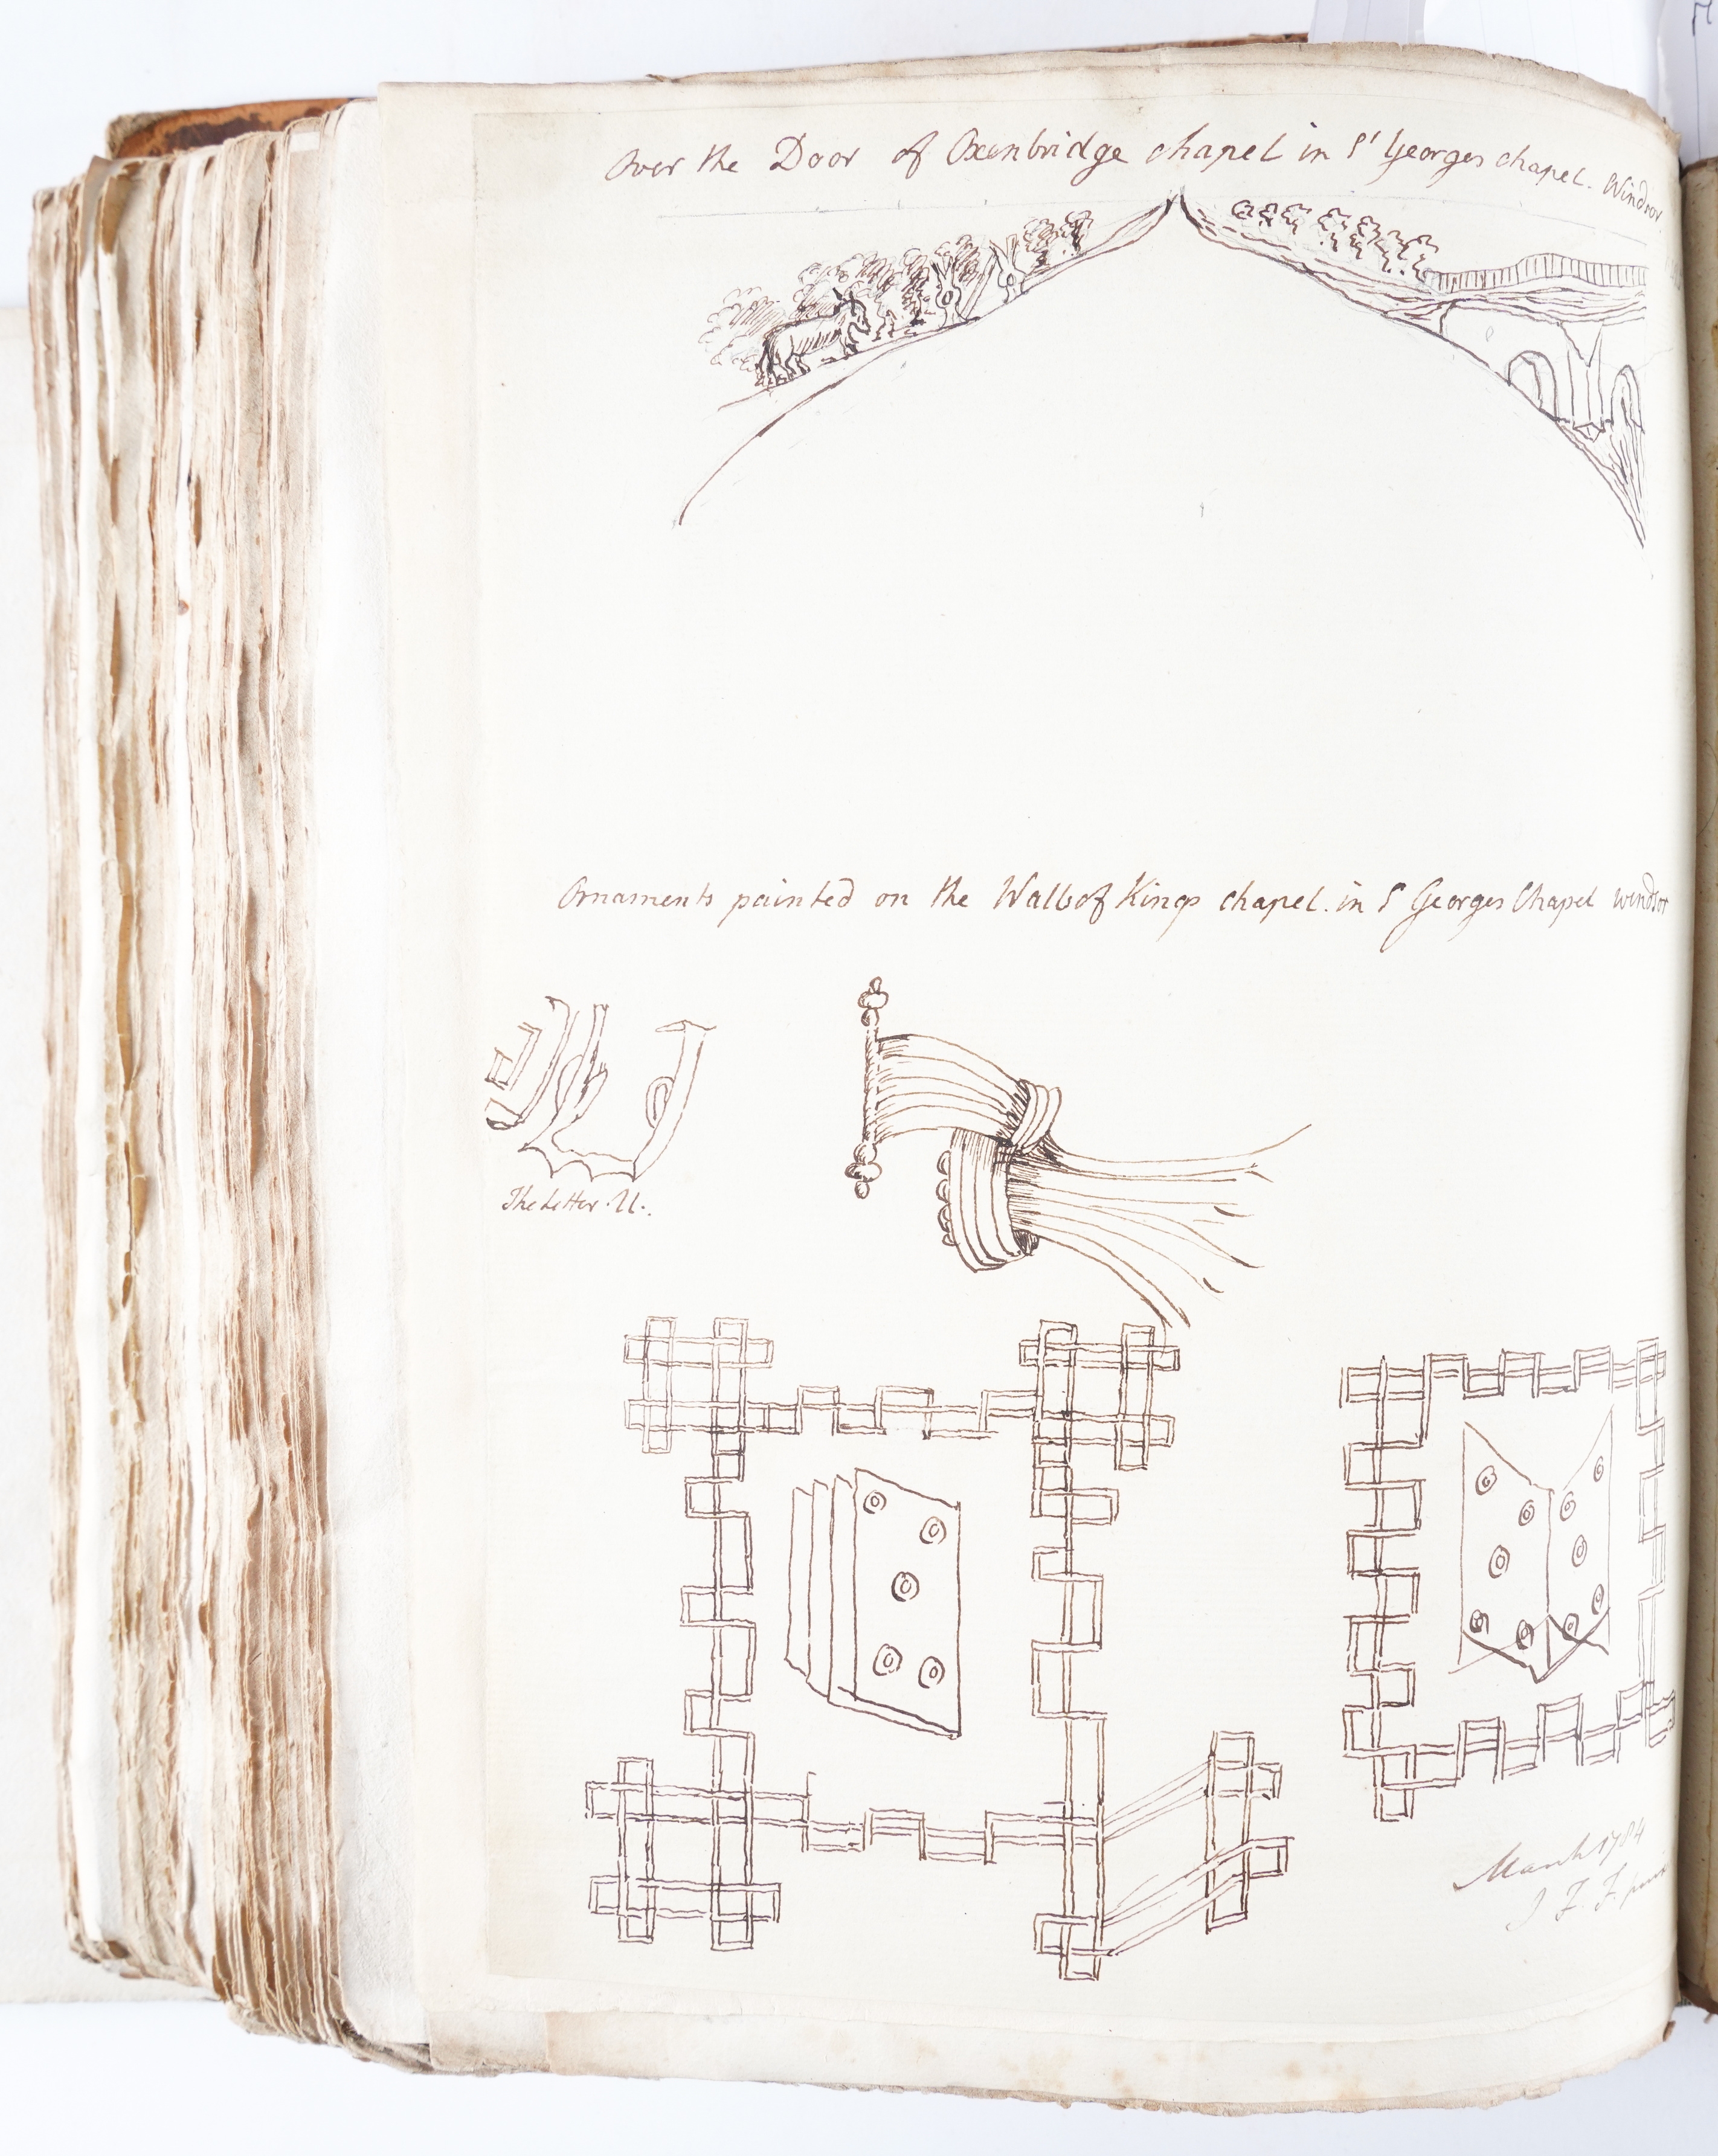 Over the Door of Oxenbridge chapel in St Georges chapel. Windsor
Ornaments painted on the Wall of Kings chapel. in S Georges Chapel windsor
The Letter. U.
March 1784
J F. F.